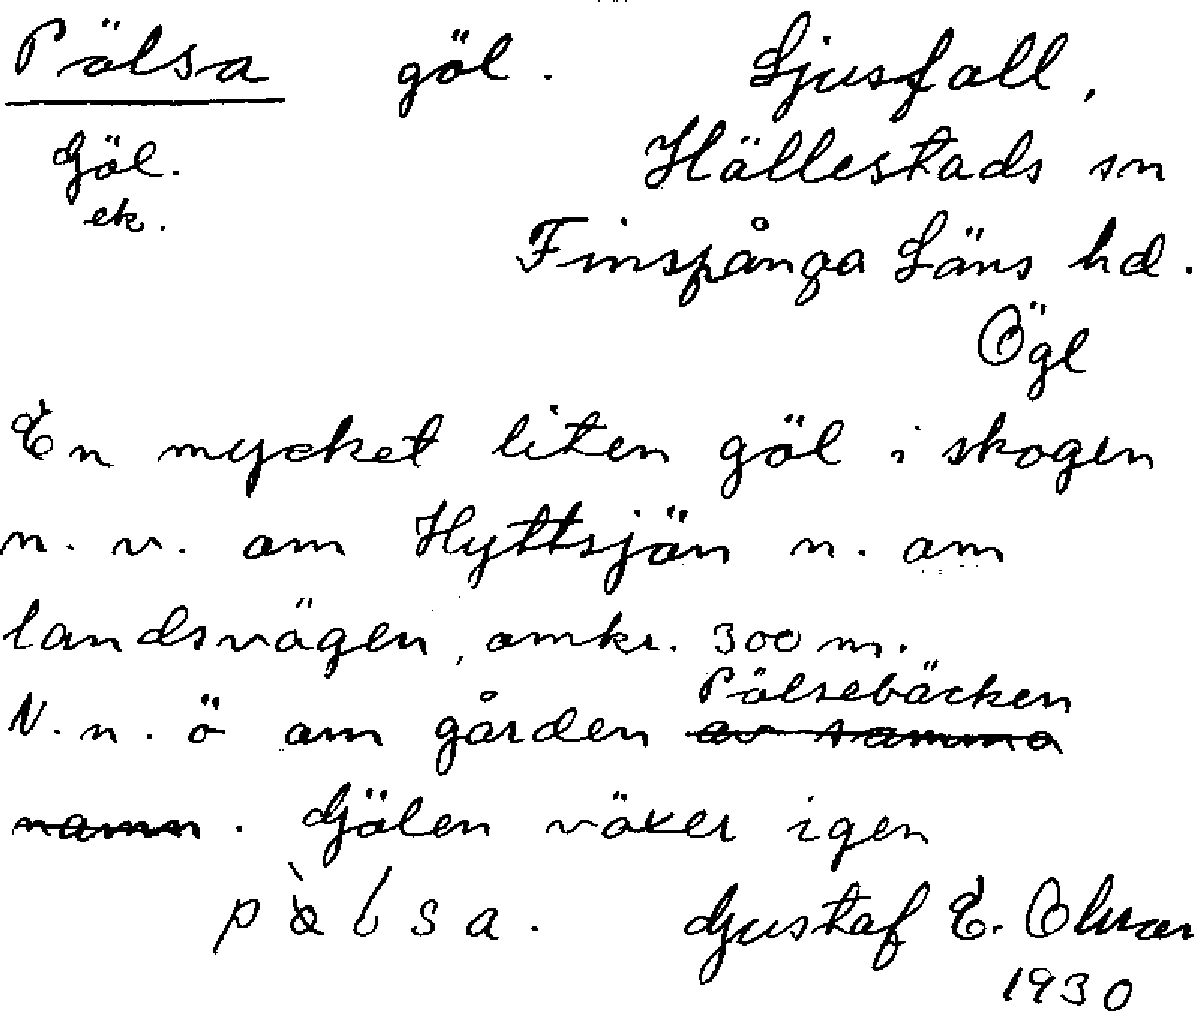 Pölsa göl. Ljusfall,
Göl. Hällestads sn
ek. Finspånga Läns hd.
Ögl
En mycket liten göl i skogen
n. v. om Hyttsjön n. om
landsvägen, omkr. 300 m.
N. n. ö om gården Pölsebäcken
av samma
namn. Gölen växer igen
Gustaf E.
1930